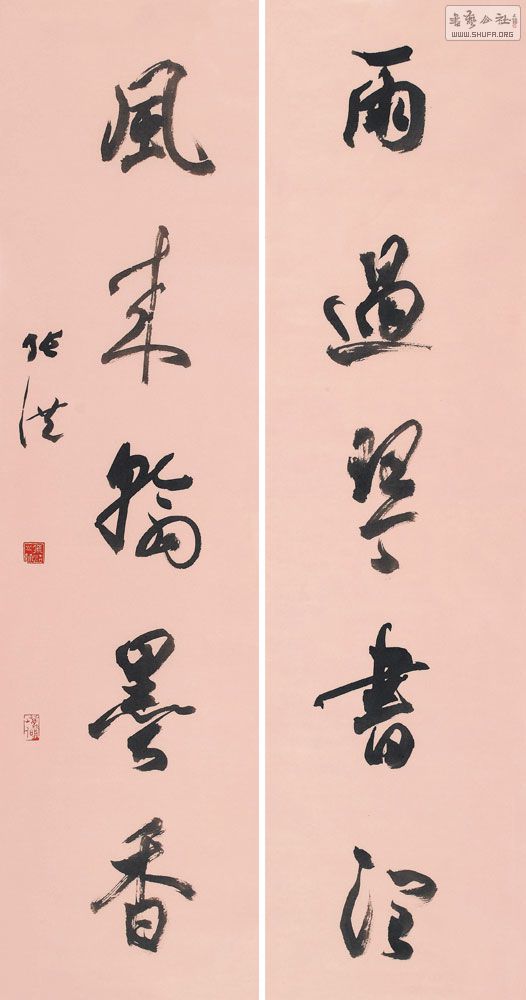 雨過琴書潤
風来翰墨香
书艺公社
WWW.SHUFA.ORG